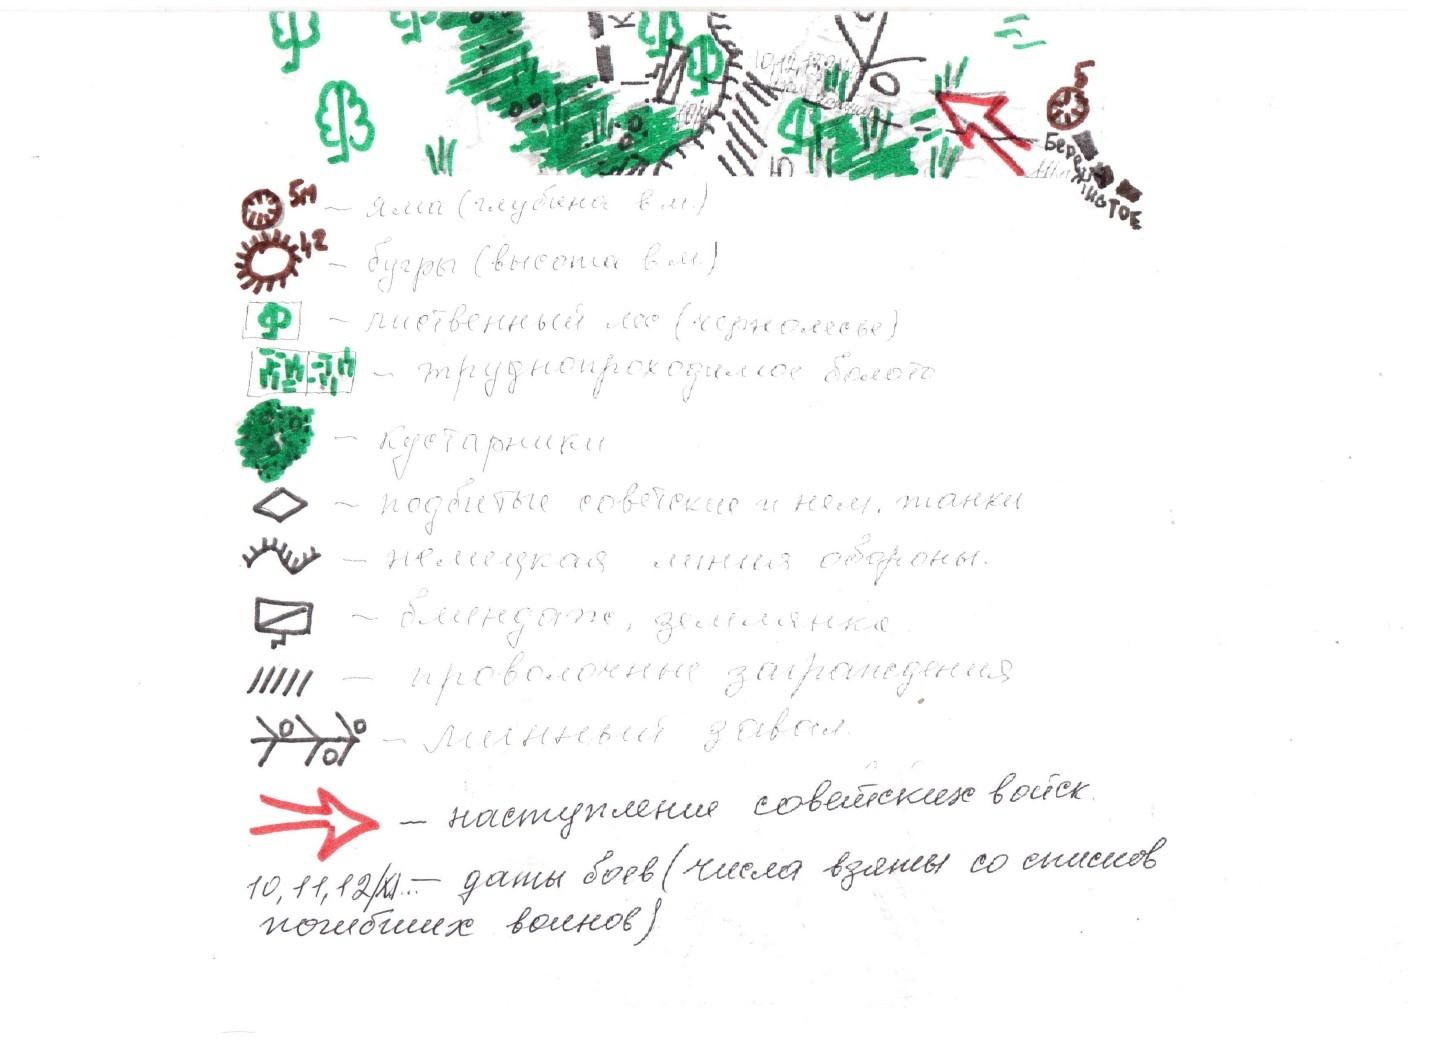 5
Бережистое
5м – яма (глубина в м.)
42 – бугры (высота в м.)
– лиственный лес (чернолесье)
– труднопроходимое болото
– кустарники
– подбитые советские и нем. танки
– немецкая линия обороны.
– блиндаж, землянка
– проволочные заграждения
– минный завал.
– наступление советских войск.
10, 11, 12/XI... – даты боев (числа взяты со списков
погибших воинов)